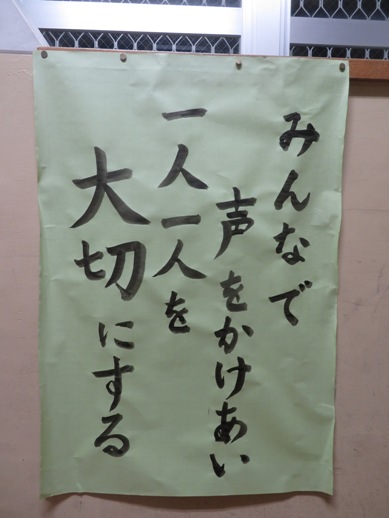 みんなで
声をかけあい
一人一人を
大切にする